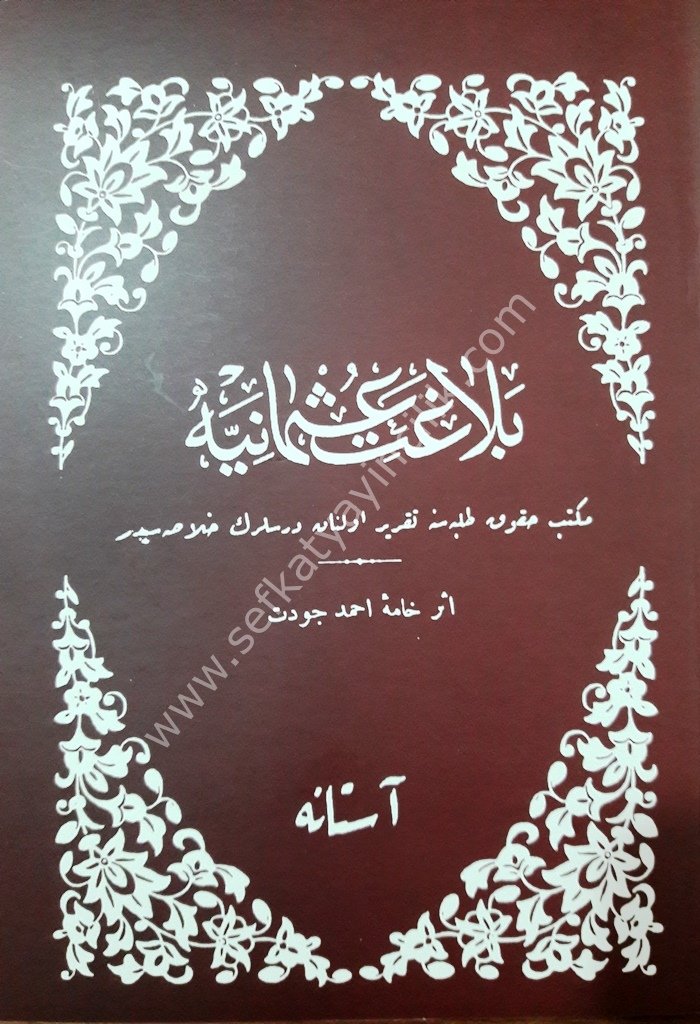 بلاغت عثمانیه
مكتب حقوق طلبه سنه تقرير اولنان درسلرك خلاصه سیدر
أثر خامهٔ احمد جودت
آستانه
www.sefkatyayincilik.com